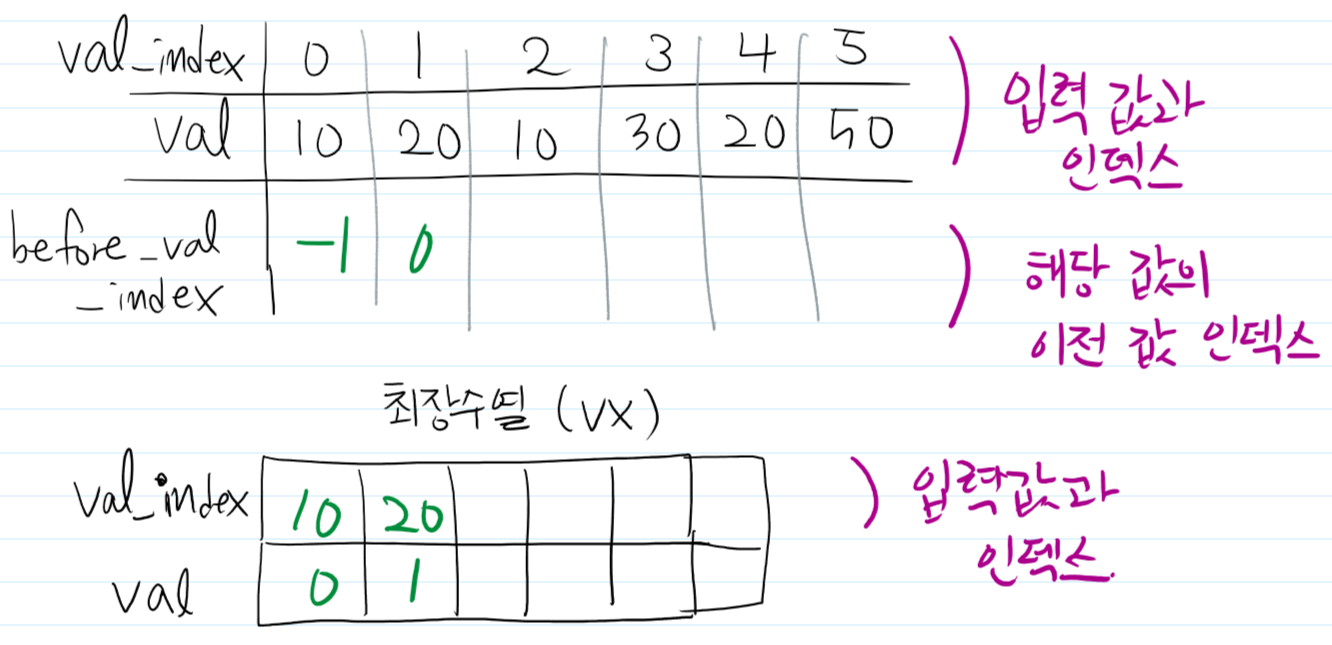 val_index 0 1 2 3 4 5
val 10 20 10 30 20 50
입력 값과
인덱스
before_val
_index
-1 0
해당 값의
이전 값 인덱스
최장수열 (VX)
val_index 10 20
val 0 1
입력값과
인덱스.